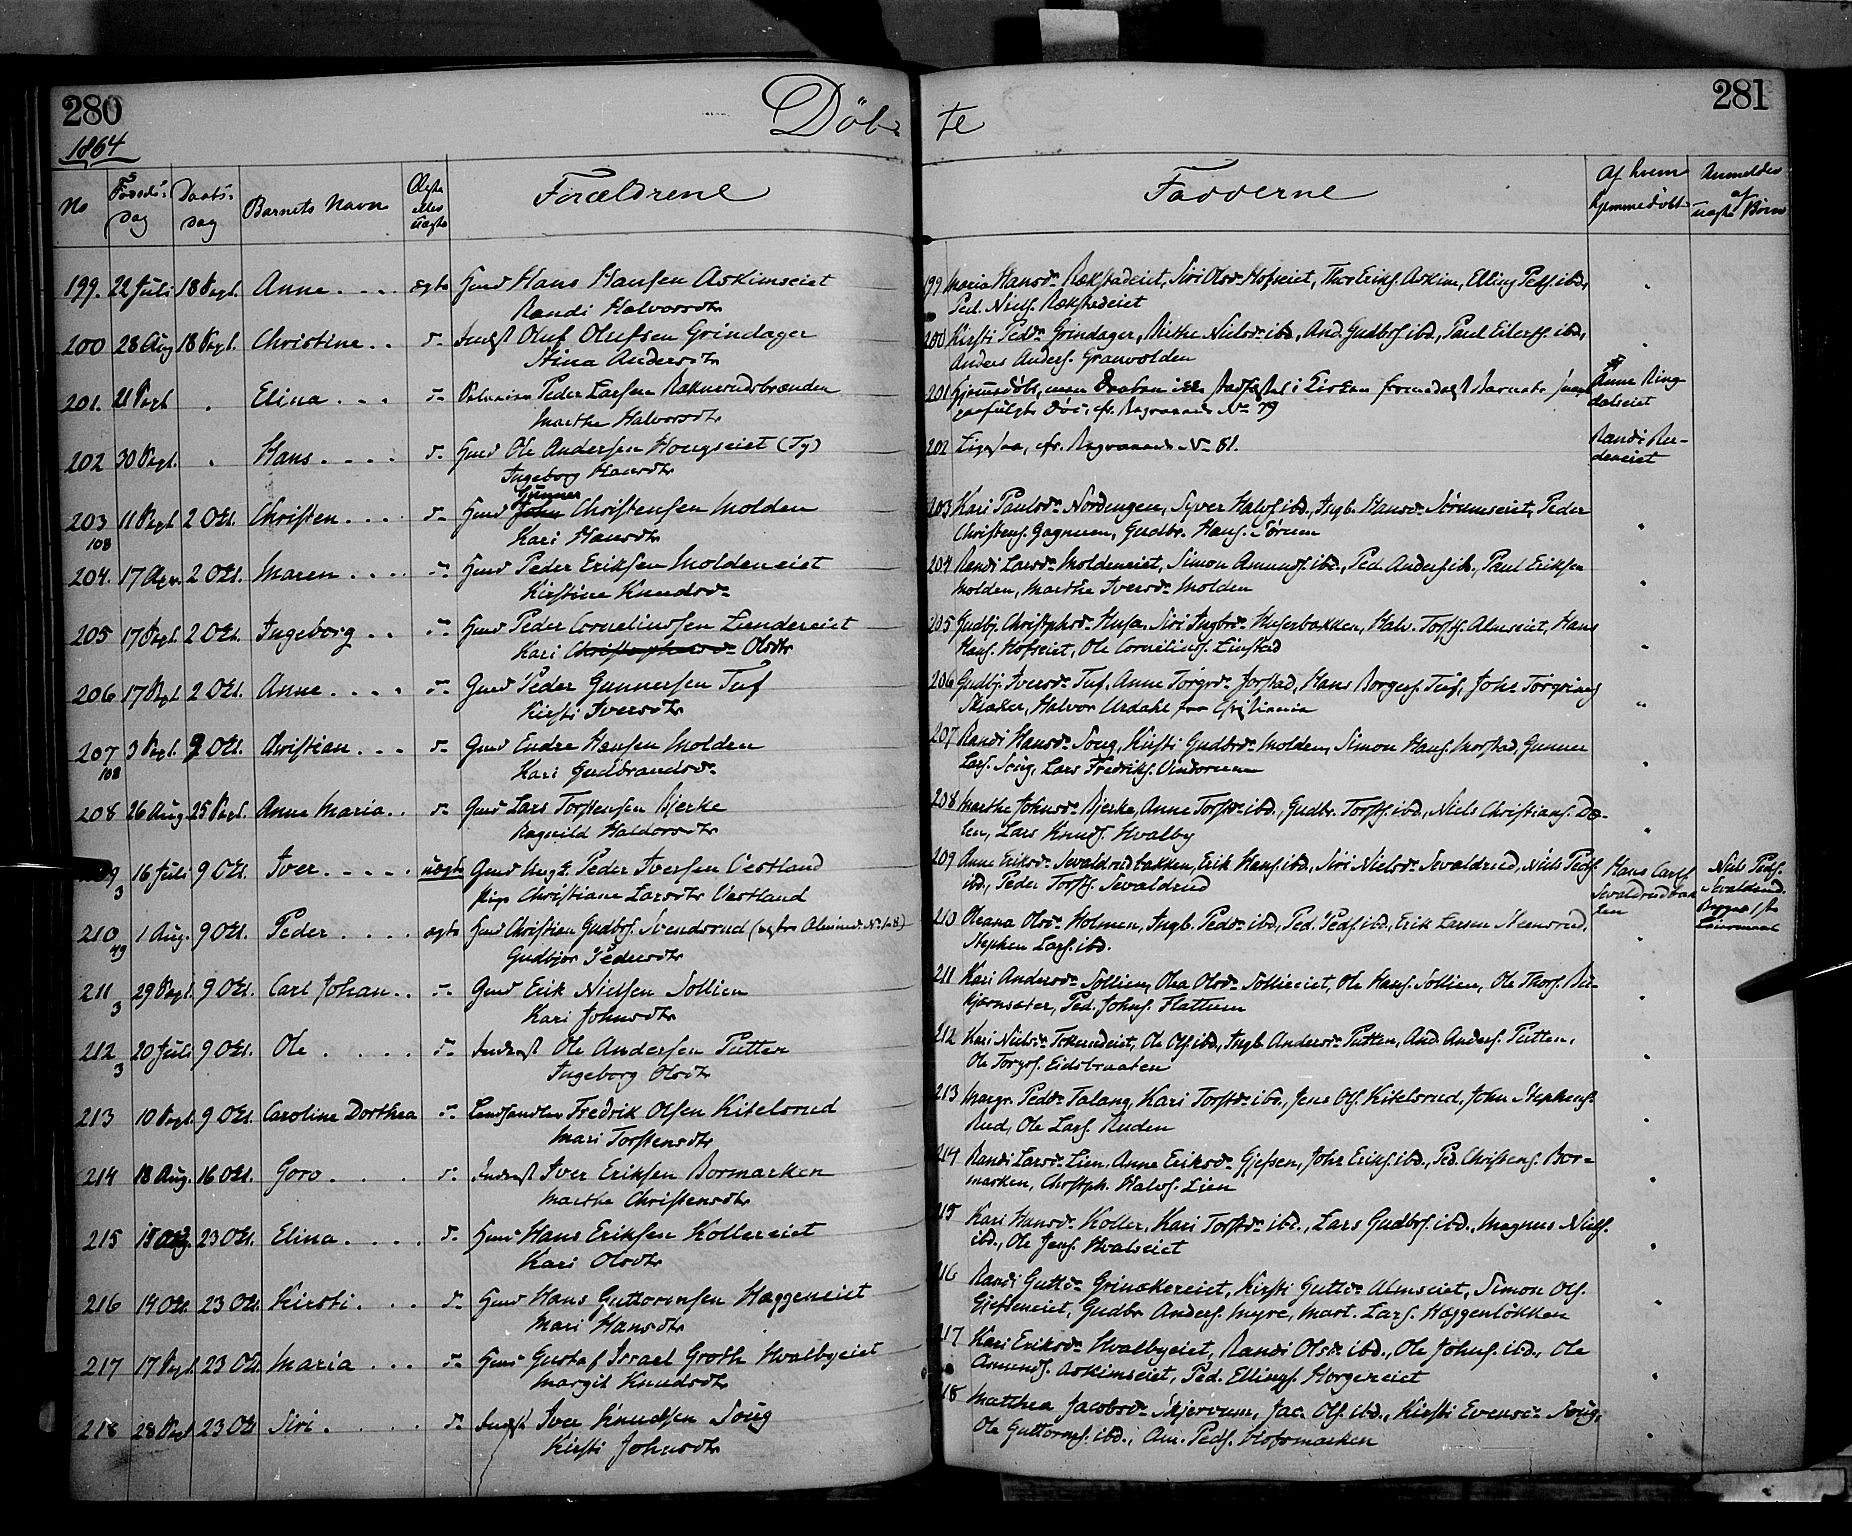 280
1864
Døb-
No
Føds-
dag
Daabs-
dag
Barnets Navn
Ægte
eller
uægte
Forældrene
199. 22 Juli 18 Sept. Anne ægte Hmd Hans Hansen Askimseiet
Randi Halvorsdtr
200 28 Aug 18 Sept. Christine d- Inderst Oluf Olufsen Grindager
Stina Andersdtr
201. 21 Sept " Elina d- Peder Larsen
Marthe Halvorsdtr
202 30 Sept. " Hans d- Hmd Ole Andersen Hougseiet
Ingeborg Hansdtr
203 11 Sept 2 Okt. Christen d- Hmd Gunner John Christensen Molden
108 Kari Hansdtr
204. 17 2 Okt. Maren d- Hmd Peder Eriksen Moldeneiet
Kirstine Knudsd-
205 17 Sept. 2 Okt. Ingeborg d- Hmd Peder Corneliussen
Kari Christophersd- Olsdtr
206 17 Sept. 2 Okt. Anne d- Gmd Peder Gunnersen Tuf
Kirsti Iversdtr
207 3 Sept. 2 Okt. Christian d- Gmd Endre Hansen Molden
108 Kari Gudbrandsd-
208 26 Aug 25 Sept. Anne Maria d- Gmd Lars Torstensen Bjerke
Ragnild Haldorsdtr
3 16 Juli 9 Okt. Iver uægte Gmd Ungk. Peder Iversen Vestland
Pige Christiane Larsdtr Vestland
210 1 Aug. 9 Okt. Peder ægte Hmd Christian Gudbrs. Svendsrud
49 Gudbjør Pedersdtr
211 29 Sept. 9 Okt. Carl Johan d- Gmd Erik Nielsen Sollien
3 Kari Johnsdtr
212 20 Juli 9 Okt. Ole d- Inderst Ole Andersen Putten
3 Ingeborg Olsdtr
213 10 Sept. 9 Okt. Caroline Dorthea d- Landhandler Fredrik Olsen Kitelsrud
Mari Torstensdtr
214 18 Aug. 16 Okt. Goro d- Inderst Iver Eriksen Bormarken
Marthe Christensdtr
215 23 Okt. Elina d- Hmd Hans Eriksen Kollereiet
Kari Olsdtr
216 14 Okt. 23 Okt. Kirsti d- Hmd Hans Guttormsen Hæggeneiet
Mari Hansdtr
217 17 Sept. 23 Okt. Maria d- Hmd Gustaf Israel Groth Hvalbyeiet
Margit Knudsdtr
218 28 Sept 23 Okt Siri d- Inderst Iver Knudsen Soug
Kirsti Johnsdtr
281
te
Fadderne
Af hvem
hjemmedøbt
Anmeldes
af
uægte Børn
199 Maria Hansd- Rækstadeiet, Siri Olsd- Hofseiet, Thor Eriks. Askim, Elling Peds. ibd.,
Ped. Niels. Rækstadeiet
200 Kirsti Pedd- Grindager, Birthe Nielsd- ibd., And. Gudbrs. ibd., Paul Eilerts. ibd.,
Anders Anders. Granvolden
201 Hjemmedøbt, men Daaben ikke stadfæstet i Kirken formedelst Barnets
Død; cfr. Begravede No 79
Anne Ring-
dalseiet
202 Ligesaa, cfr. Begravede No 81.
Randi
203 Kari Paulsd- Nordengen, Syver Halvs. ibd., Ingb. Hansd- Sørumseiet, Peder
Christens. Gagnum, Gudbr. Hans. Sørum
204 Randi Larsd- Moldeneiet, Simon Amunds. ibd., Ped. Anders. ib., Paul Eriksen
Molden, Marthe Iversd- Molden
205 Gudbj. Christophsd- Husa, Siri Ingbrd- Halv. Torsts. Almseiet, Hans
Hans. Hofseiet, Ole Cornelius.
206 Gudbj. Iversd- Tuf, Anne Torgrd- Jorstad, Hans Borgers. Tuf, John Torgrims.
Skiaker, Halvor Ardahl fra Christiania
207 Randi Hansd- Soug, Kirsti Gudbrd- Molden, Simon Hans. Morstad, Gunner
Lars. Soug, Lars Fredriks. Undorum
208 Marthe Johnsd- Bjerke, Anne Torstd- ibd., Gudbr. Torsts. ibd., Niels Christians. Dæ-
len, Lars Knuds. Hvalby
209 Anne Eriksd- Sevaldrudbakken, Erik Hans. ibd., Siri Nielsd- Sevaldrud, Niels Peds.
ibd., Peder Torsts. Sevaldrud
Hans Carls.
Sevaldrudbak-
ken
Niels Peds.
Sevaldrud.
Begges 1ste
Leiermaal
210 Oleana Olsd- Holmen, Ingb. Pedd- ibd., Ped. Peds. ibd., Erik Larsen
Stephen Lars. ibd.
211 Kari Andersd- Sollien, Olea Olsd- Sollieeiet, Ole Hans. Sollien, Ole Thors.
Ped. Johns. Flattum
212 Kari Nielsd- Ole Ols. ibd., Ingb. Andersd- Putten, And. Anders. Putten,
Ole Torgrs. Eidsbraaten
213 Margr. Pedd- Falang, Kari Torstd- ibd., Jens Ols. Kitelsrud, John Stephens.
Rud, Ole Lars. Ruden
214 Randi Larsd- Lien, Anne Eriksd- Gjefsen, John Eriks. ibd., Ped. Christens. Bor-
marken, Christph. Halvs. Lien
215 Kari Hansd- Koller, Kari Torstd- ibd., Lars Gudbrs. ibd., Magnus Niels.
ibd., Ole Jens. Hvalseiet
216 Randi Guttd- Grinakereiet, Kirsti Guttd- Almseiet, Simon Ols.
Gjefseneiet, Gudbr. Anders. Myre, Mart. Lars. Hæggenløkken
217 Kari Eriksd- Hvalbyeiet, Randi Olsd- ibd., Ole Johns. ibd., Ole
Amunds. Askimseiet, Ped. Ellings. Horgeneiet
218 Matthea Jacobsd- Skjervum, Jac. Ols. ibd., Kirsti Evensd- Soug,
Ole Guttorms. ibd., Peds. Hofsmarken